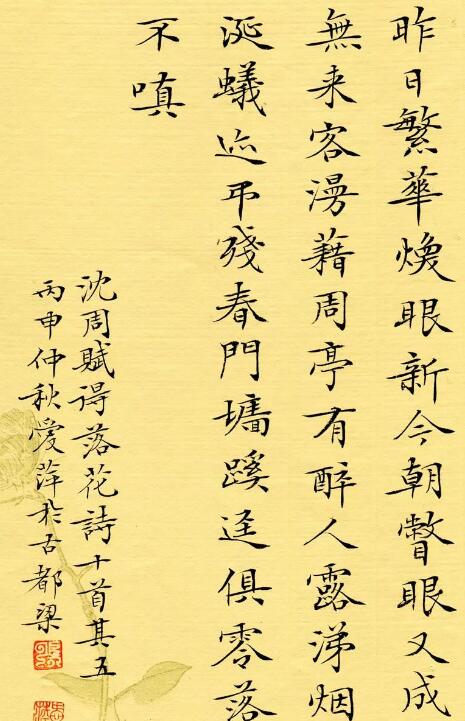 昨日繁華煥眼新今朝瞥眼又成
無来客漫藉周亭有醉人露涕烟
涎蟻迹弔殘春門墻蹊迳俱零落
不嗔
沈周賦得落花詩十首其五
丙申仲秋愛萍於古都梁